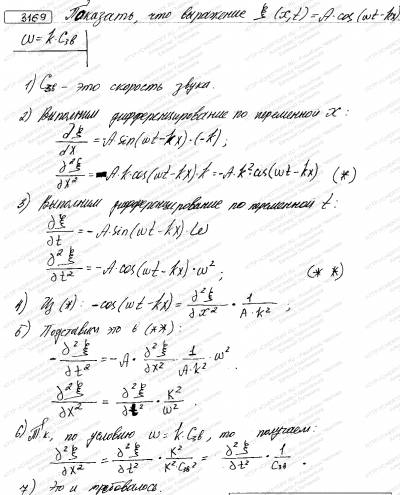 3169 Показать, что выражение ξ(x,t)=A·cos(ωt-kx)
ω=k·Cзв
1) Cзв - это скорость звука.
2) Выполним дифференцирование по переменной x:
∂ξ/∂x = -A·sin(ωt-kx)·(-k);
∂²ξ/∂x² = -A·k·cos(ωt-kx)·k=-A·k²·cos(ωt-kx) (*)
3) Выполним дифференцирование по переменной t:
∂ξ/∂t = -A·sin(ωt-kx)·ω
∂²ξ/∂t² = -A·cos(ωt-kx)·ω²; (**)
4) Из (*): -cos(ωt-kx)=∂²ξ/∂x² · 1/(A·k²);
5) Подставим это в (**):
-∂²ξ/∂t² = -A·∂²ξ/∂x²·1/(A·k²)·ω²
∂²ξ/∂x² = ∂²ξ/∂t²·K²/ω².
6) Т.к. по условию ω=k·Cзв, то получаем:
∂²ξ/∂x² = ∂²ξ/∂t²·K²/(K²·Cзв²) = ∂²ξ/∂t²·1/Cзв.
7) Это и требовалось.